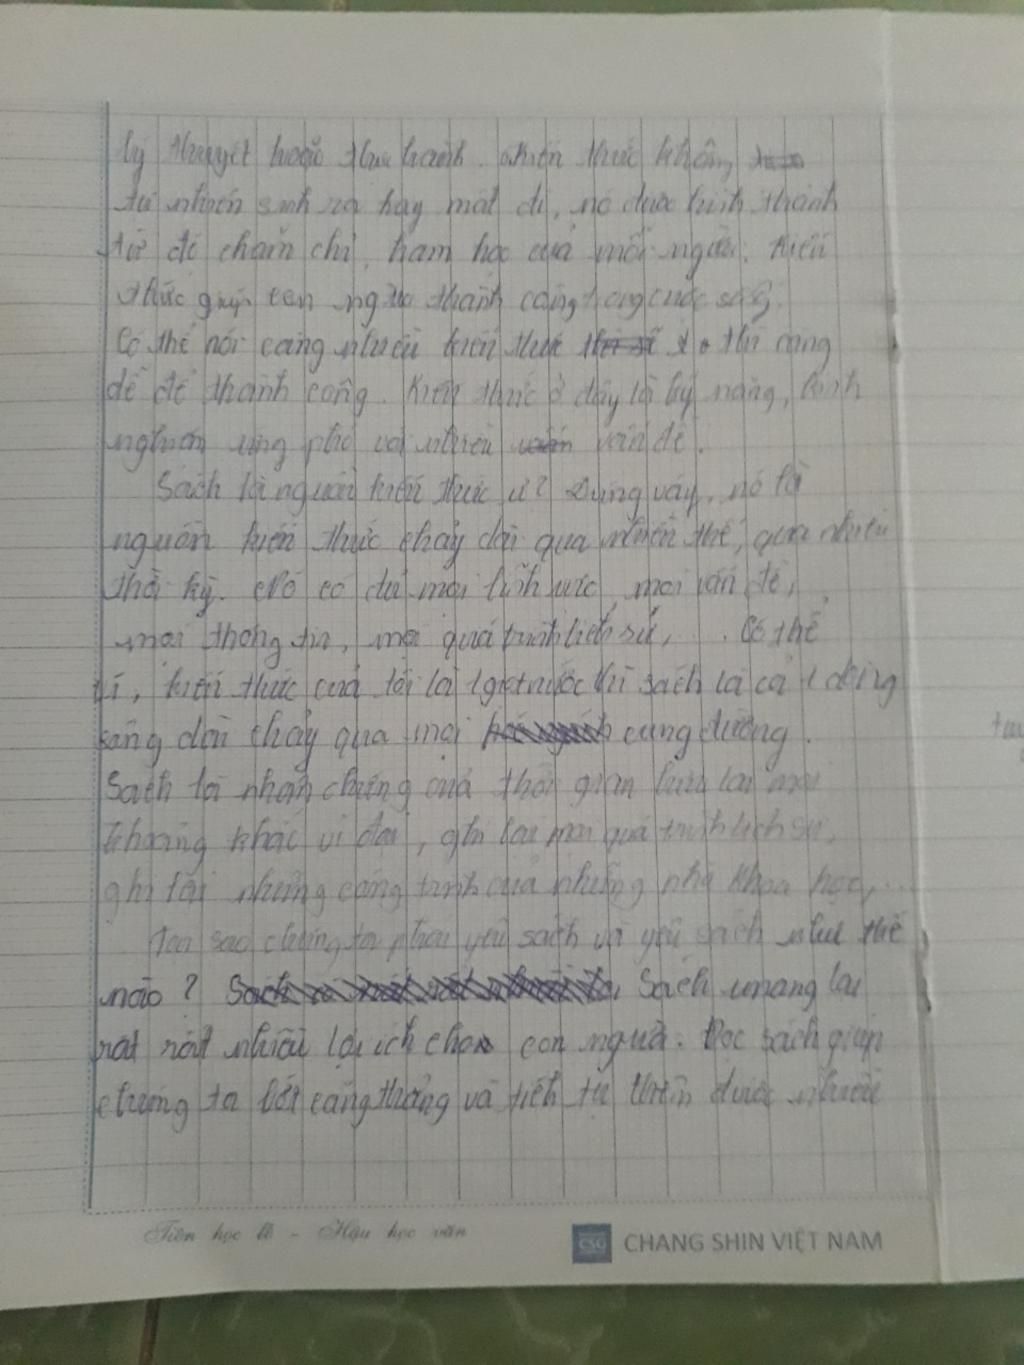 lý thuyết hoặc thực hành. Kiến thức không
tự nhiên sinh ra hay mất đi, nó được hình thành
từ để chăm chỉ, ham học của mỗi người. Kiến
thức giúp con người thành công trong cuộc sống.
Có thể nói càng nhiều kiến thức thì càng
dễ để thành công. Kiến thức ở đây là kỹ năng, kinh
nghiệm ứng phó với nhiều vấn đề.
Sách là nguồn kiến thức ư? Đúng vậy, nó là
nguồn kiến thức chảy dài qua nhiều thế, qua nhiều
thời kỳ. Nó có đủ mọi lĩnh vực, mọi vấn đề,
mọi thông tin, mọi quá trình lịch sử, ... Có thể
ví, kiến thức của tôi là 1 giọt nước thì sách là cả 1 dòng
sông dài chảy qua mọi cung đường.
Sách là nhân chứng của thời gian lưu lại mọi
khoảng khắc vĩ đại, ghi lại mọi quá trình lịch sử,
ghi lại những công trình của những nhà khoa học,...
Tại sao chúng ta phải yêu sách và yêu sách như thế
nào? Sách mang lại
rất rất nhiều lợi ích cho con người. Đọc sách giúp
chúng ta bớt căng thẳng và tiết được nhiều
Tiên học lễ - Hậu học văn
CSG CHANG SHIN VIỆT NAM